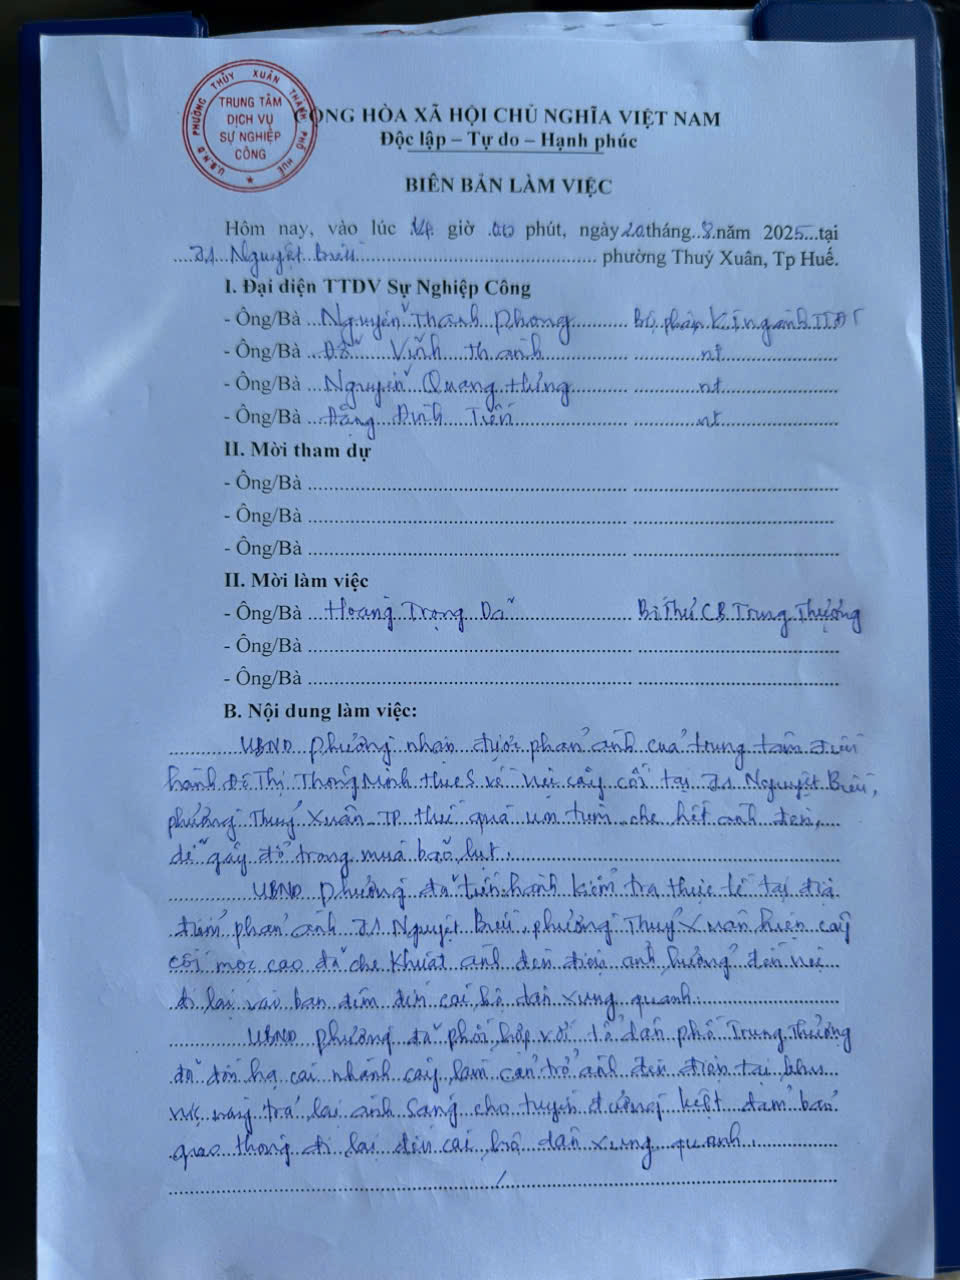 U.B.N.D PHƯỜNG THỦY XUÂN THÀNH PHỐ HUẾ
TRUNG TÂM
DỊCH VỤ
SỰ NGHIỆP
CÔNG
CỘNG HÒA XÃ HỘI CHỦ NGHĨA VIỆT NAM
Độc lập – Tự do – Hạnh phúc
BIÊN BẢN LÀM VIỆC
Hôm nay, vào lúc 14 giờ 00 phút, ngày 20 tháng 8 năm 2025 tại
Nguyệt Biều phường Thuỷ Xuân, Tp Huế.
I. Đại diện TTDV Sự Nghiệp Công
- Ông/Bà Nguyễn Thanh Phong Bộ phận
- Ông/Bà Đỗ Vĩnh Thành nt
- Ông/Bà Nguyễn Quang Hưng nt
- Ông/Bà Đặng Đình Tiến nt
II. Mời tham dự
- Ông/Bà
- Ông/Bà
- Ông/Bà
II. Mời làm việc
- Ông/Bà Hoàng Trọng Dã Bí Thư CB Trung Thượng
- Ông/Bà
- Ông/Bà
B. Nội dung làm việc:
UBND phường nhận được phản ánh của trung tâm điều
hành Đô Thị Thông Minh HueS về việc cây cối tại Nguyệt Biều,
phường Thuỷ Xuân TP Huế quá um tùm che hết ánh đèn,
dễ gãy đổ trong mưa bão, lụt.
UBND phường đã tiến hành kiểm tra thực tế tại địa
điểm phản ánh Nguyệt Biều, phường Thuỷ Xuân hiện cây
cối mọc cao đã che khuất ánh đèn điện ảnh hưởng đến việc
đi lại vào ban đêm đến các hộ dân xung quanh.
UBND phường đã phối hợp với tổ dân phố Trung Thượng
đã đốn hạ các nhánh cây làm cản trở ánh đèn điện tại khu
vực này trả lại ánh sáng cho tuyến đường, kiệt đảm bảo
giao thông đi lại đến các hộ dân xung quanh.
/